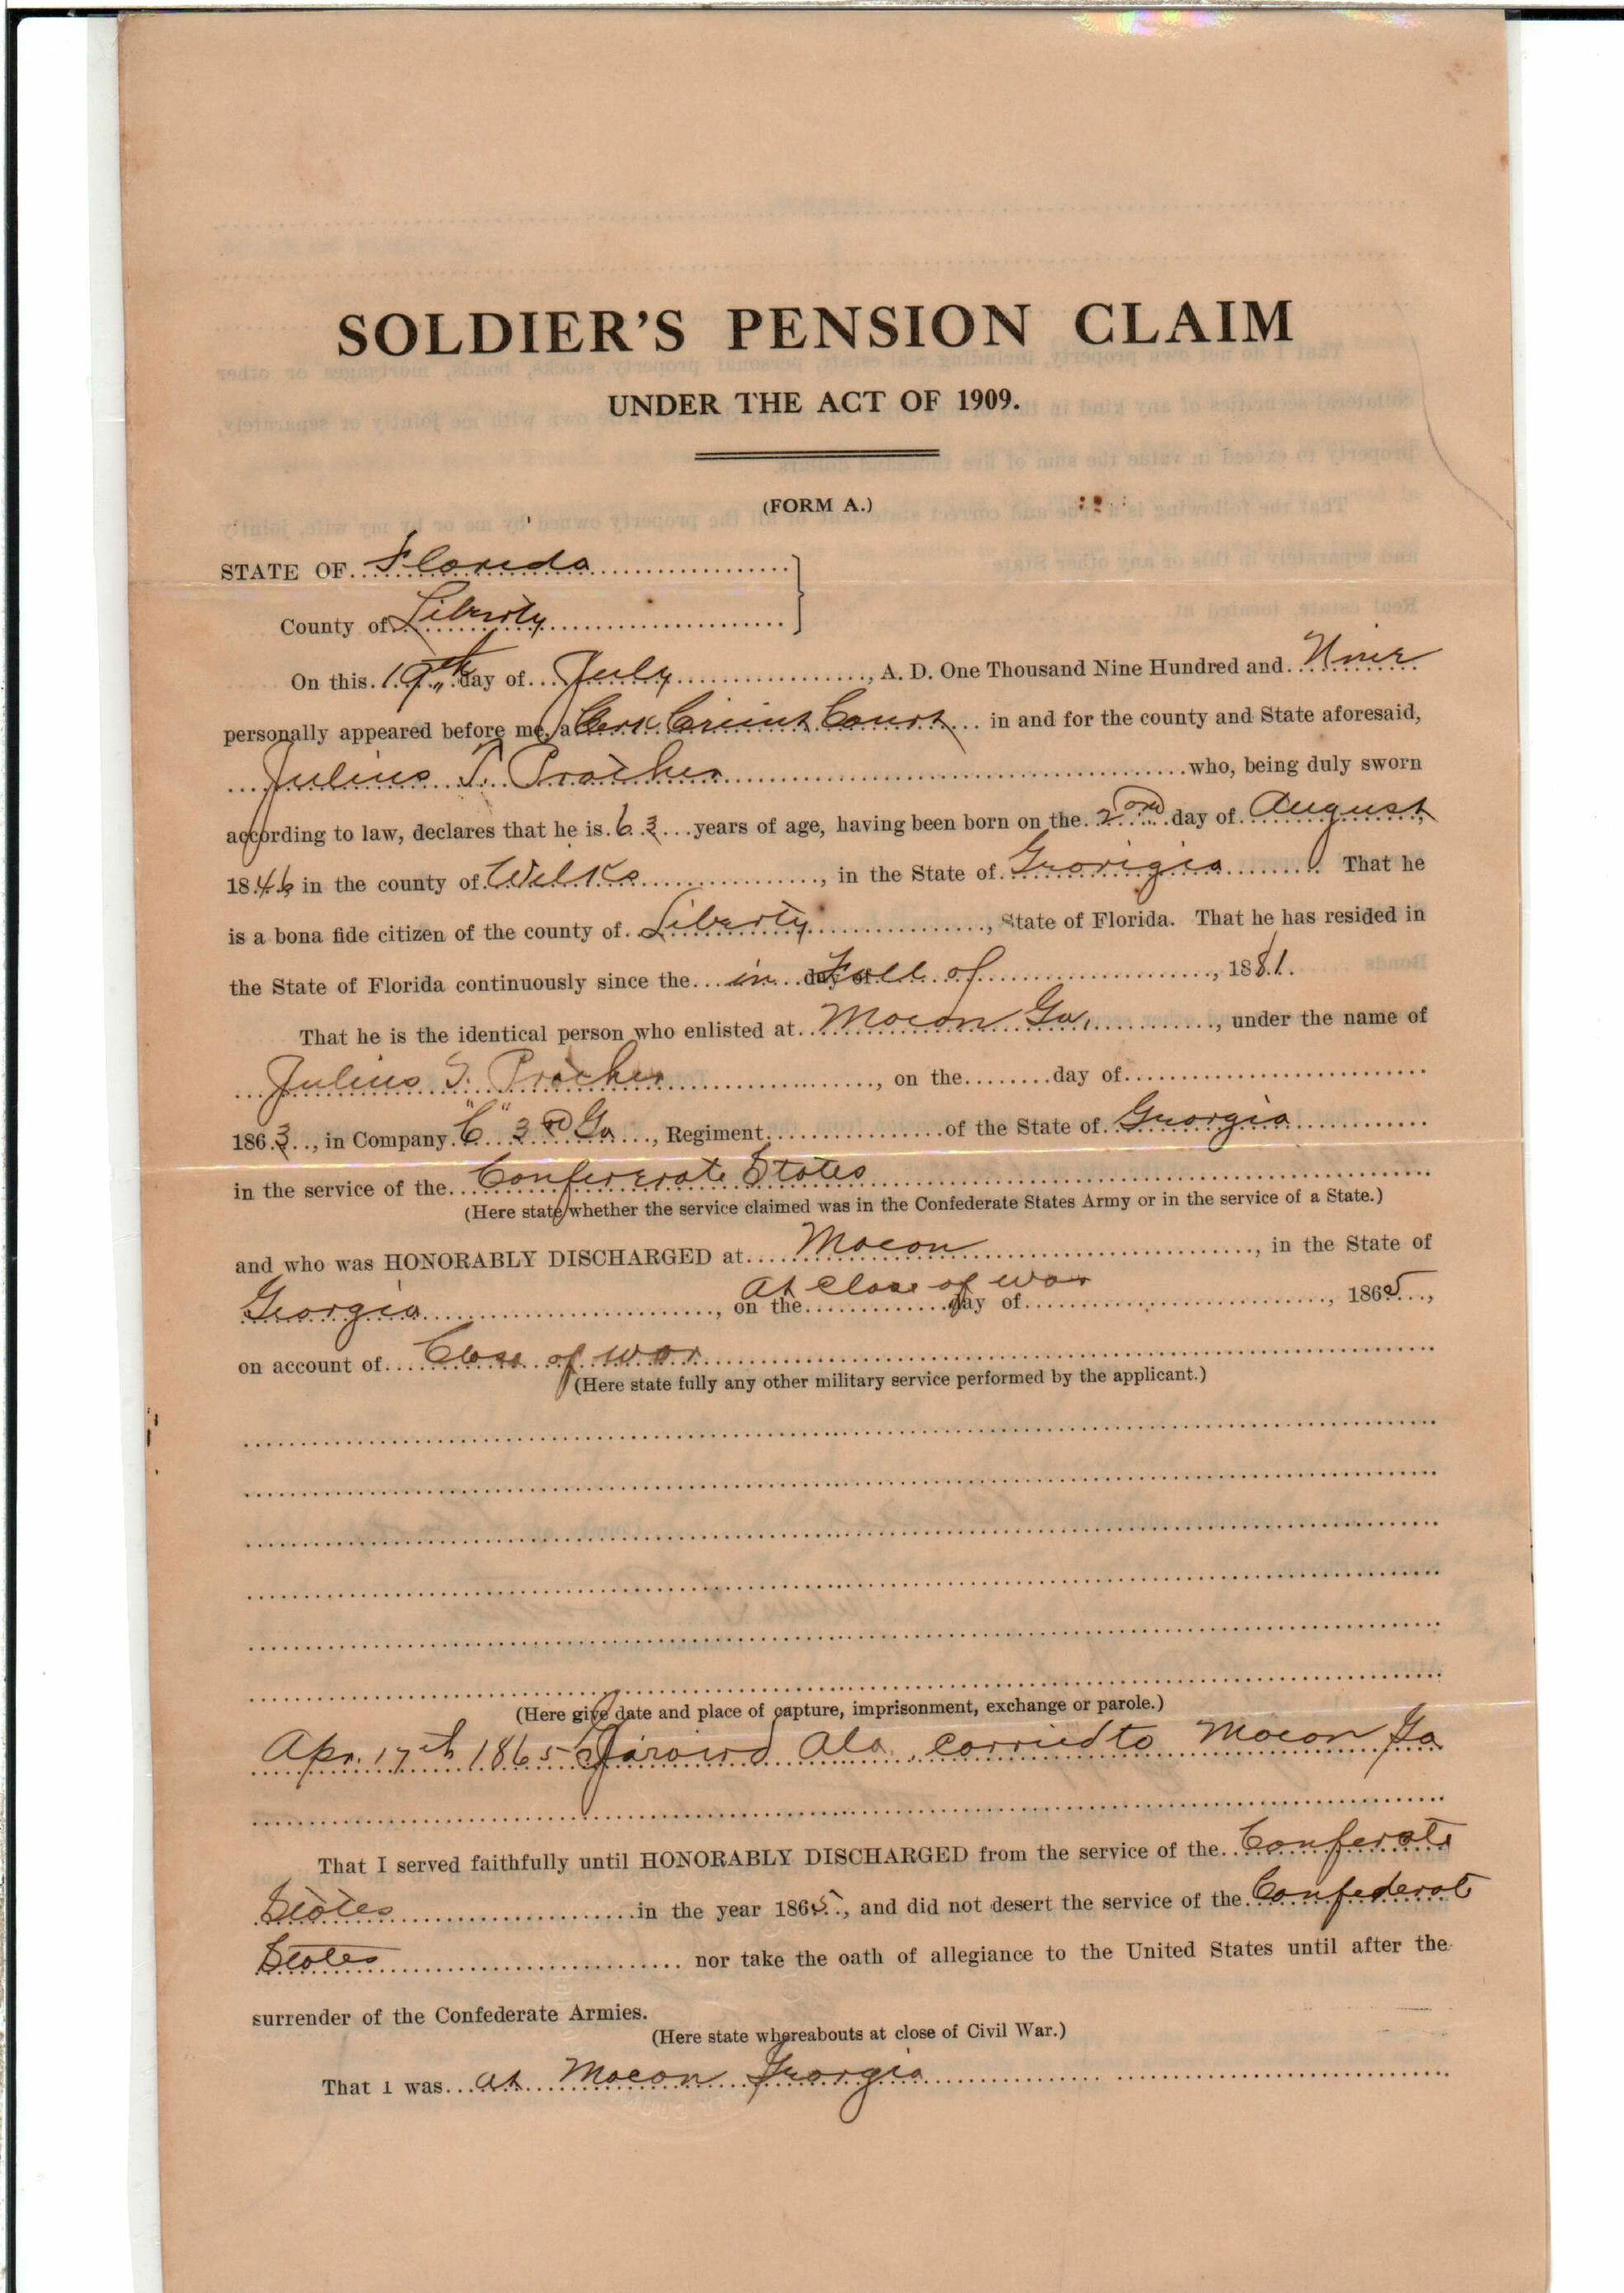 SOLDIER'S PENSION CLAIM
UNDER THE ACT OF 1909.
(FORM A.)
STATE OF Florida
County of Liberty
On this 19th day of July, A. D. One Thousand Nine Hundred and Nine
personally appeared before me, a Clerk Circuit Court in and for the county and State aforesaid,
Julius T. who, being duly sworn
according to law, declares that he is 63 years of age, having been born on the 2nd day of August
1846 in the county of Wilks, in the State of Grorigia. That he
is a bona fide citizen of the county of Liberty, State of Florida. That he has resided in
the State of Florida continuously since the in day of Fall of, 1881.
That he is the identical person who enlisted at Macon Ga., under the name of
Julius T. on the day of
1863, in Company "C" 3rd Ga, Regiment of the State of Georgia
in the service of the Conferrate States
(Here state whether the service claimed was in the Confederate States Army or in the service of a State.)
and who was HONORABLY DISCHARGED at Macon, in the State of
At close of war
Georgia, on the day of, 1865,
on account of Close of war
(Here state fully any other military service performed by the applicant.)
(Here give date and place of capture, imprisonment, exchange or parole.)
Apr. 17th 1865 Girard Ala. carried to Macon Ga
That I served faithfully until HONORABLY DISCHARGED from the service of the Conferate
States in the year 1865, and did not desert the service of the Confederat
States nor take the oath of allegiance to the United States until after the
surrender of the Confederate Armies.
(Here state whereabouts at close of Civil War.)
That I was at Macon Georgia